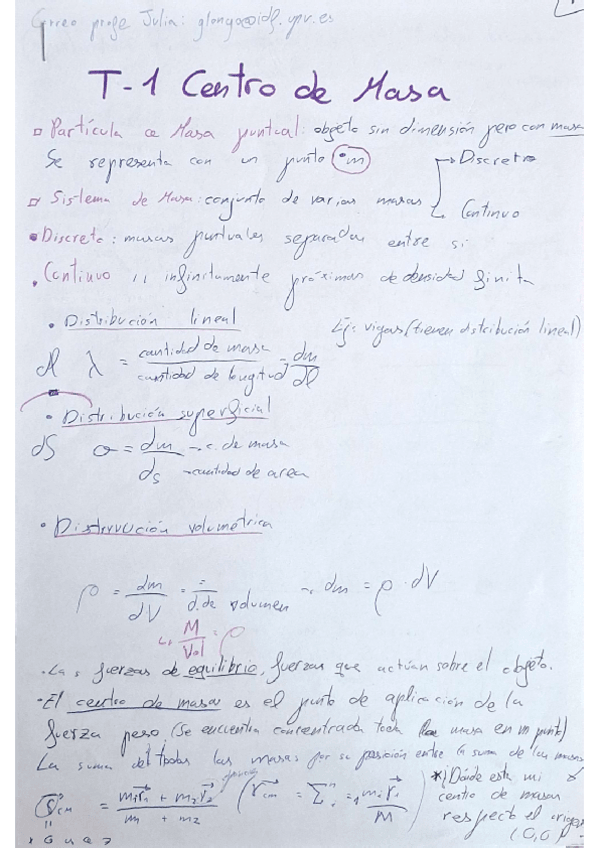 Correo profe Julia: glongo@idf.upv.es
T-1 Centro de Masa
Partícula o Masa puntual: objeto sin dimensión pero con masa
Se representa con un punto •m
→ Discreto
Sistema de Masa: conjunto de varias masas
Continuo
• Discreto: masas puntuales separadas entre sí
• Continuo " infinitamente próximas de densidad finita
• Distribución lineal
Ej: vigas (tienen distribución lineal)
dl λ = cantidad de masa / cantidad de longitud = dm / dl
• Distribución superficial
dS σ = dm → c. de masa
ds → cantidad de area
• Distrvución volumétrica
ρ = dm / dV = = / d. de volumen → dm = ρ · dV
↳ M / Vol = ρ
• Las fuerzas de equilibrio, fuerzas que actúan sobre el objeto.
• El centro de masas es el punto de aplicación de la
fuerza peso. (Se encuentra concentrada toda la masa en un punto)
La suma de todas las masas por su posición entre la suma de las masas
*¿Dónde está mi
centro de masas
respecto el origen
(0,0)
r CM = m₁r₁ + m₂r₂ / m₁ + m₂ (r cm = Σ i=1 mᵢ rᵢ / M)